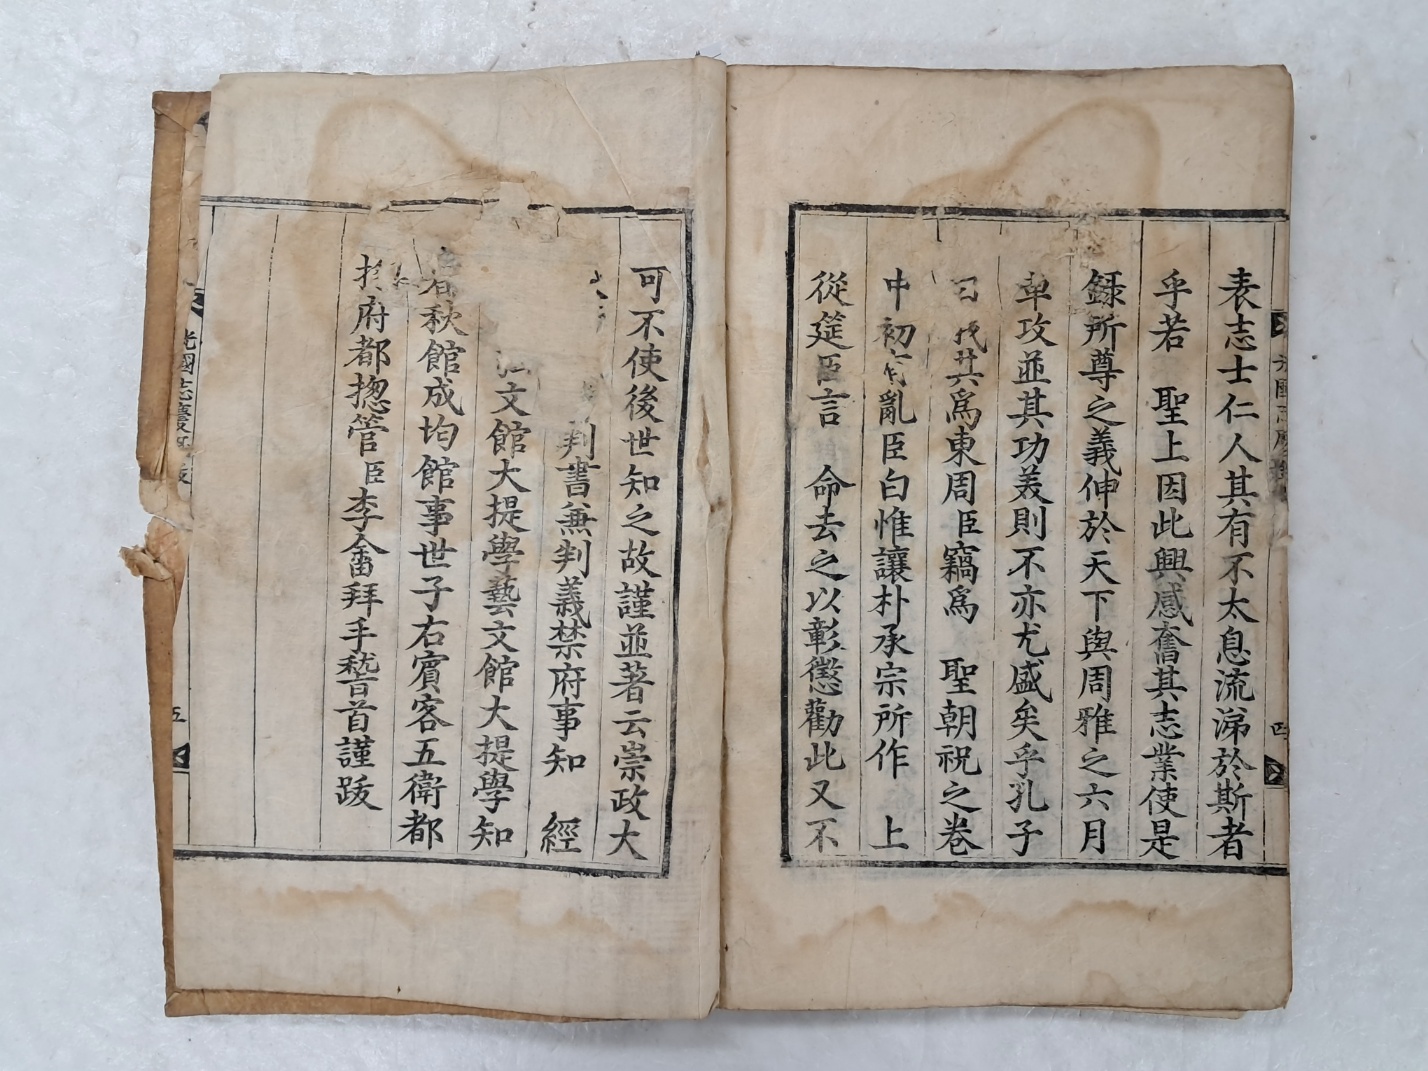 表志士仁人其有不太息流涕於斯者
乎若 聖上因此興感奮其志業使是
錄所尊之義伸於天下與周雅之六月
車攻並其功美則不亦尤盛矣乎孔子
曰 其爲東周臣竊爲 聖朝祝之卷
中初 亂臣白惟讓朴承宗所作 上
從筵臣言 命去之以彰懲勸此又不
四
可不使後世知之故謹並著云崇政大
判書兼判義禁府事知 經
文館大提學藝文館大提學知
春秋館成均館事世子右賓客五衛都
府都摠管臣李畬拜手稽首謹跋
光國志慶錄跋
五